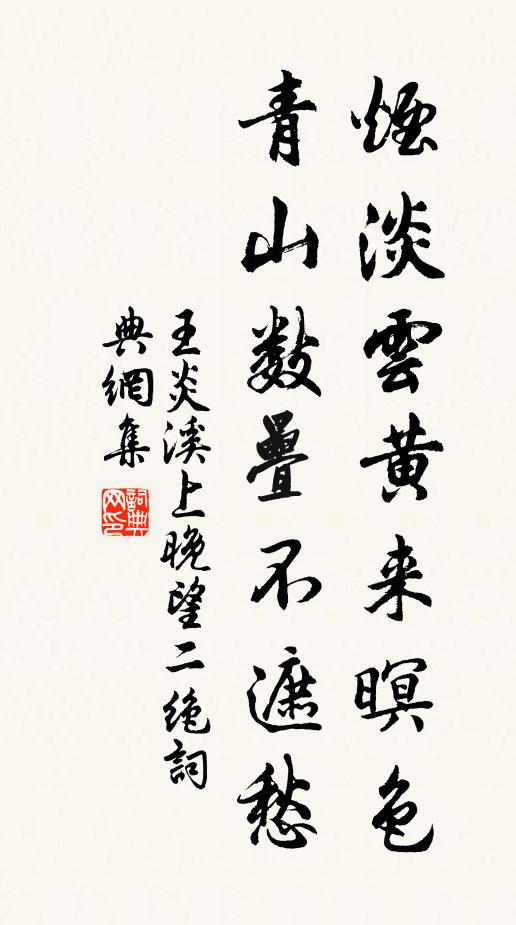 煙淡雲黄来暝色
青山數疊不遮愁
王炎溪上晚望二绝詞
典網集
詞典网印